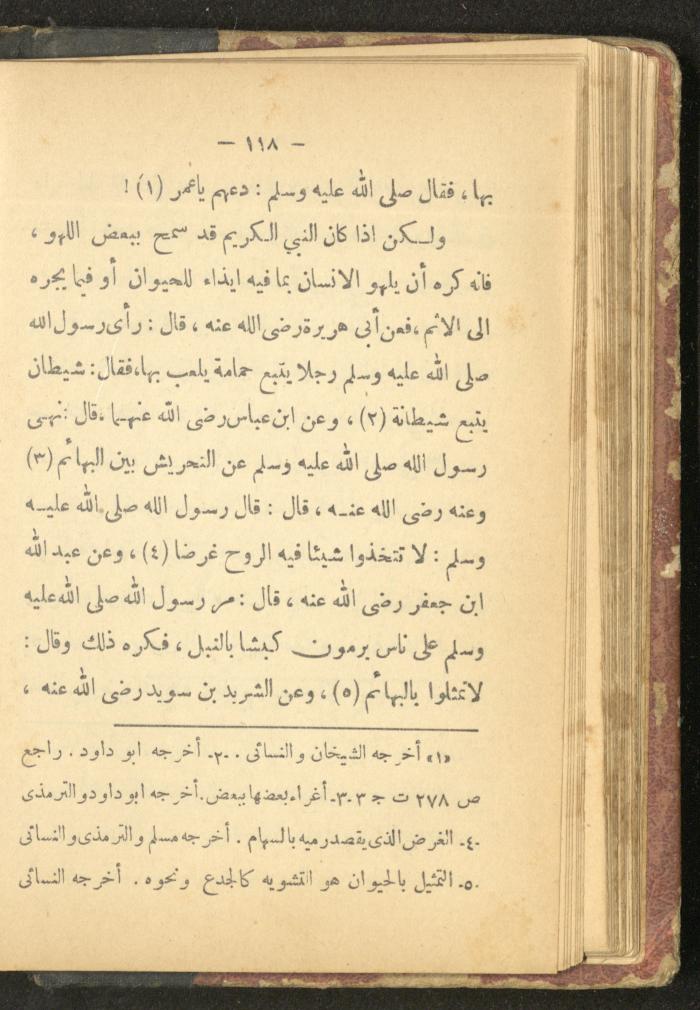 — ١١٨ —
بها ، فقال صلى الله عليه وسلم : دعهم ياعمر (١) !
ولكن اذا كان النبي الكريم قد سمح ببعض اللهو ،
فانه كره أن يلهو الانسان بما فيه ايذاء للحيوان أو فيما يجره
الى الاثم ، فعن أبى هريرة رضى الله عنه ، قال : رأى رسول الله
صلى الله عليه وسلم رجلا يتبع حمامة يلعب بها ، فقال : شيطان
يتبع شيطانة (٢) ، وعن ابن عباس رضى الله عنهما ، قال : نهى
رسول الله صلى الله عليه وسلم عن التحريش بين البهائم (٣)
وعنه رضى الله عنه ، قال : قال رسول الله صلى الله عليه
وسلم : لا تتخذوا شيئا فيه الروح غرضا (٤) ، وعن عبد الله
ابن جعفر رضى الله عنه ، قال : مر رسول الله صلى الله عليه
وسلم على ناس يرمون كبشا بالنبل ، فكره ذلك وقال :
لا تمثلوا بالبهائم (٥) ، وعن الشريد بن سويد رضى الله عنه ،
«١» أخرجه الشيخان والنسائى . -٢- أخرجه ابو داود . راجع
ص ٢٧٨ ت ج ٣ -٣- أغراء بعضها ببعض . أخرجه ابو داود والترمذى
-٤- الغرض الذى يقصد رميه بالسهام . أخرجه مسلم والترمذى والنسائى
-٥- التمثيل بالحيوان هو التشويه كالجدع ونحوه . أخرجه النسائى